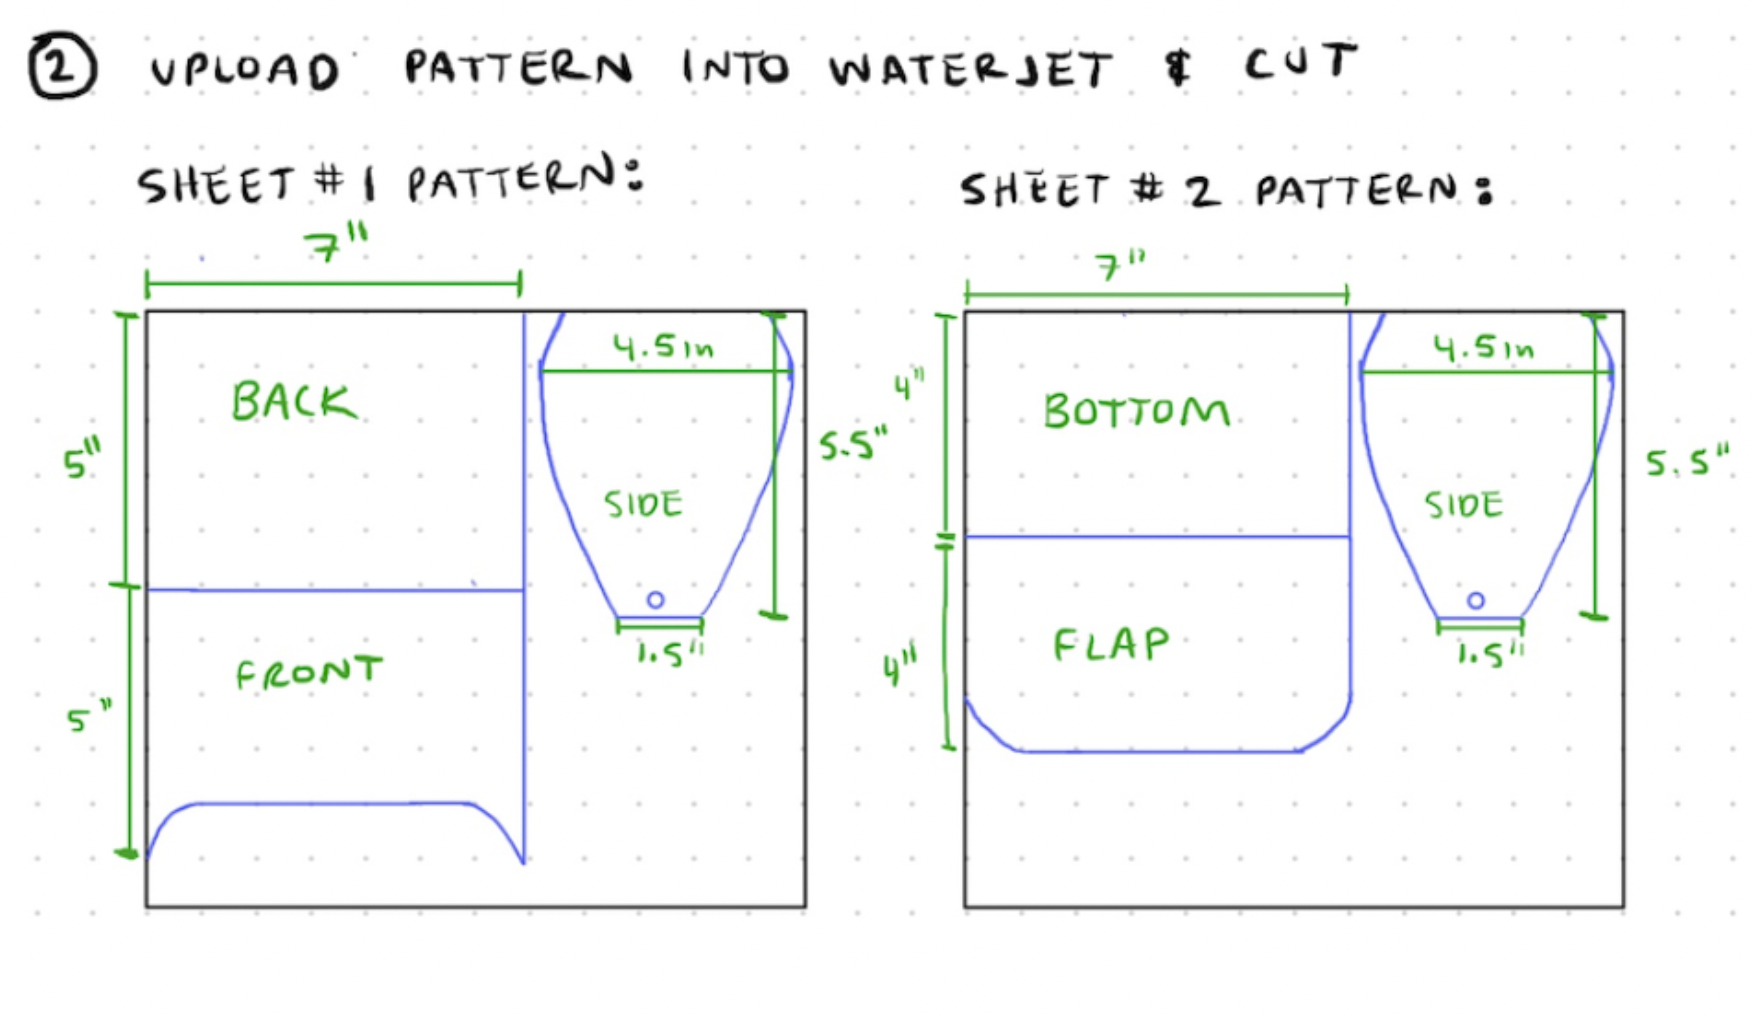 ② UPLOAD PATTERN INTO WATERJET & CUT
SHEET #1 PATTERN:
7"
BACK
5"
4.5in
5.5"
SIDE
1.5"
FRONT
5"
SHEET #2 PATTERN:
7"
4"
BOTTOM
4.5in
5.5"
SIDE
1.5"
FLAP
4"